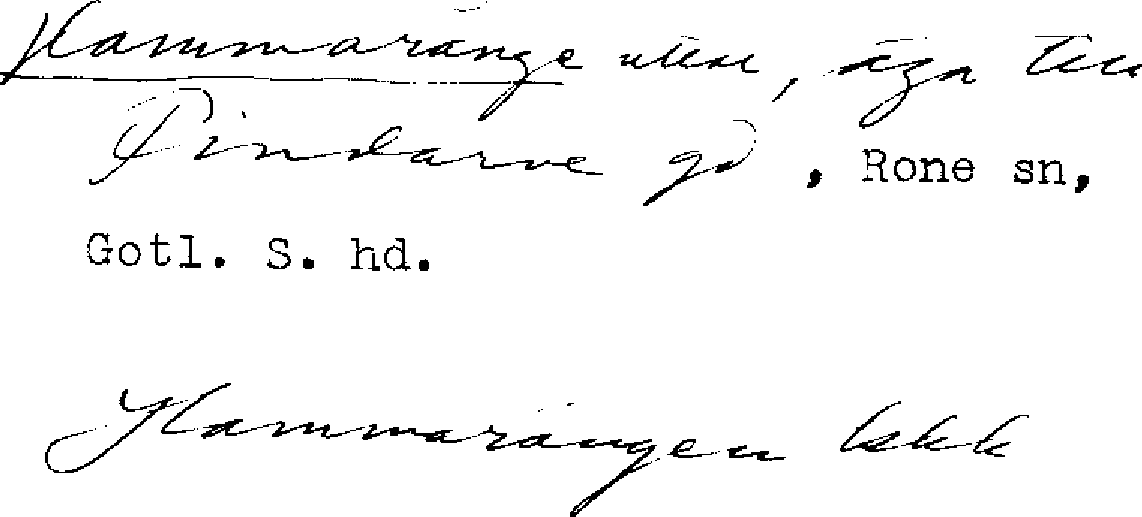 Hammaränge uttal, äga till
Pindarve gd, Rone sn,
Gotl. S. hd.
Hammarängen Iskk